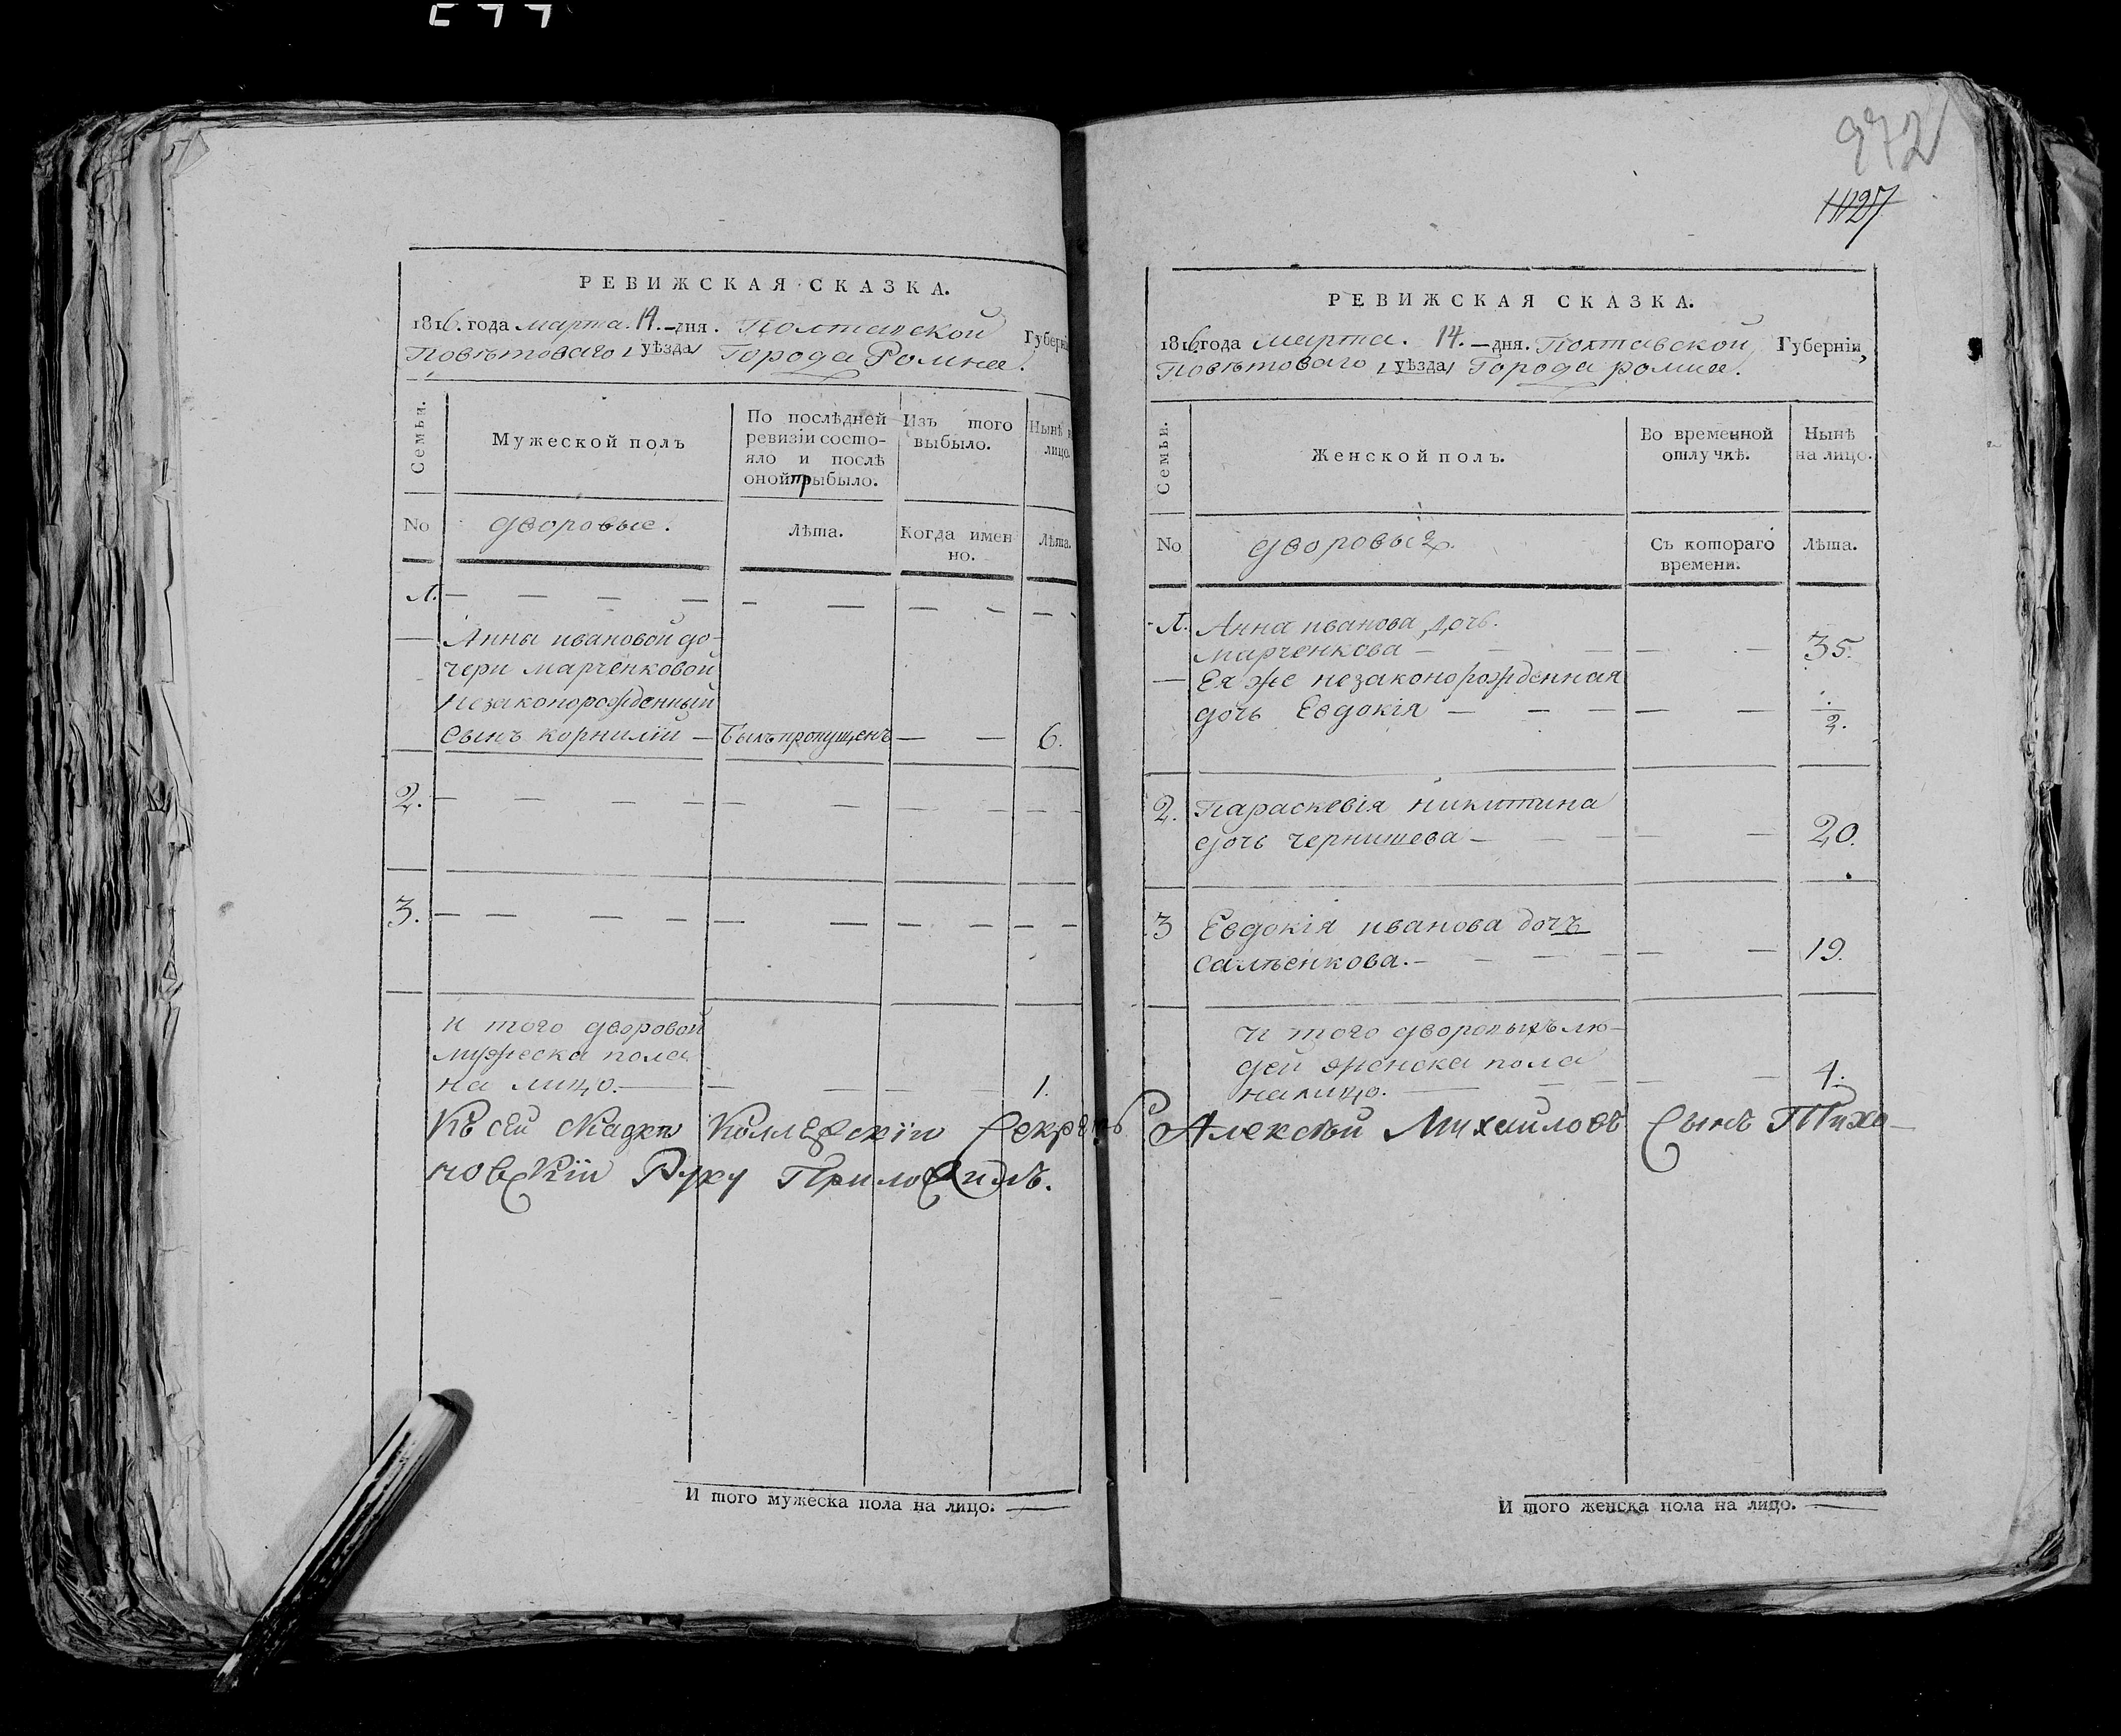 РЕВИЖСКАЯ СКАЗКА.
1816. года марта. 14. дня. Полтавской Губерні
Повѣтоваго уѣзда Города Ромна.
Семьи.
Мужеской полъ
По послѣдней ревизіи состо-
яло и послѣ
оной прыбыло.
Изъ того
выбыло.
Нынѣ
лицо.
No
дворовые.
Лѣта.
Когда имен
но.
Лѣта.
1.
Анны ивановой до-
чери марченковой
незаконорожденный
Сынъ корнилій — Былъ пропущенъ — — 6.
2.
3.
и того дворовой
мужеска пола
на лицо. — 1.
Къ сей Скадки Коллежскій Секретарь Алексѣй Михайловъ Сынъ Тихо-
новскій Руку Приложилъ.
И того мужеска пола на лицо.
972
1127
РЕВИЖСКАЯ СКАЗКА.
1816 года марта. 14. дня. Полтавской Губерніи,
Повѣтоваго уѣзда Города ромна.
Семьи.
Женской полъ.
Во временной
отлучкѣ.
Нынѣ
на лицо.
No
дворовые.
Съ котораго
времени.
Лѣта.
1. Анна иванова дочь.
марченкова — 35.
Ея же незаконорожденная
дочь Евдокія — 2.
2. Параскевія никитина
дочь чернишева — 20.
3 Евдокія иванова дочъ
салѣенкова. — 19.
и того дворовыхъ лю-
дей женска пола
налицо. — 4.
И того женска пола на лицо.